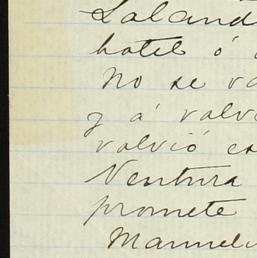 Saland
hotel ó a
No se va
y á volv
volvió es
Ventura
promete
Manuel